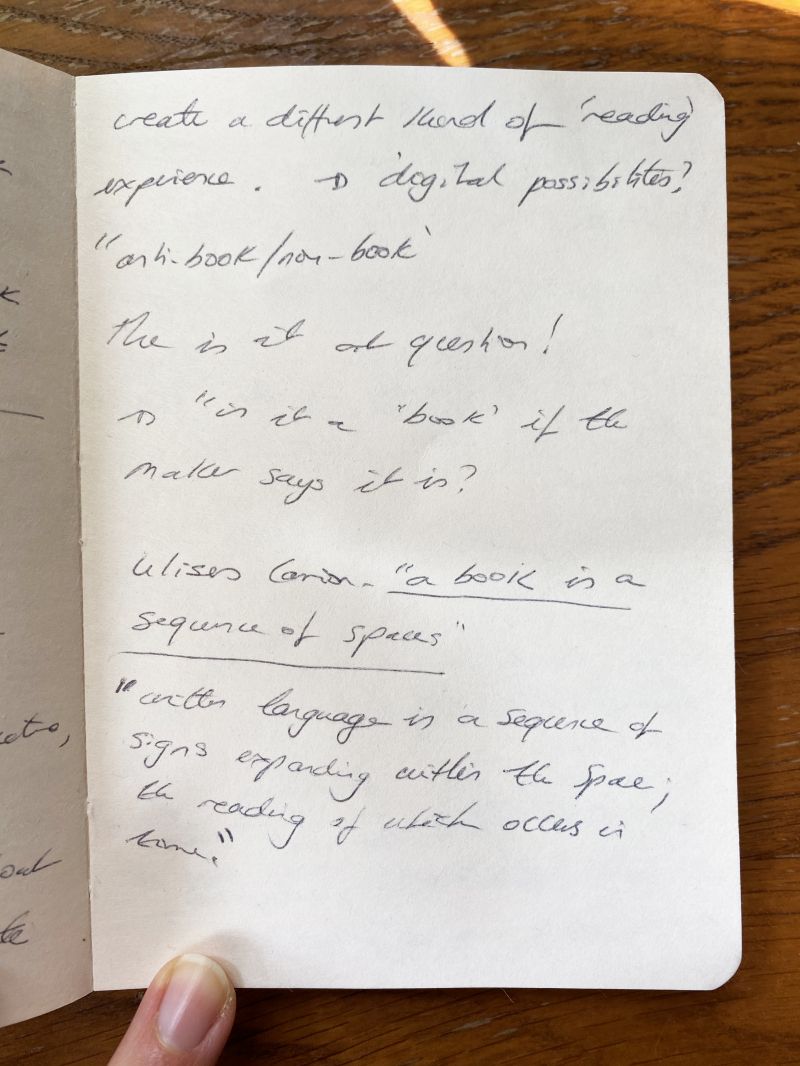 create a different kind of 'reading'
experience. → 'digital possibilities?
"anti-book/non-book'
The is it art question!
→ "is it a 'book' if the
maker says it is?
Ulises Carrion. "a book is a
sequence of spaces"
"written language is a sequence of
signs expanding within the space;
the reading of which occurs in
time."